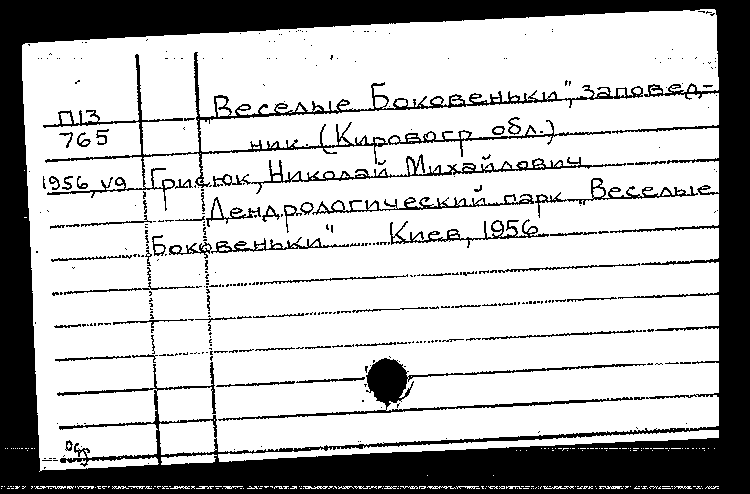 „Веселые Боковеньки", заповед-
П13
765
ник. (Кировогр обл.)
1956, V9 Грисюк, Николай Михайлович
Дендрологический парк „Веселые
Боковеньки" Киев, 1956